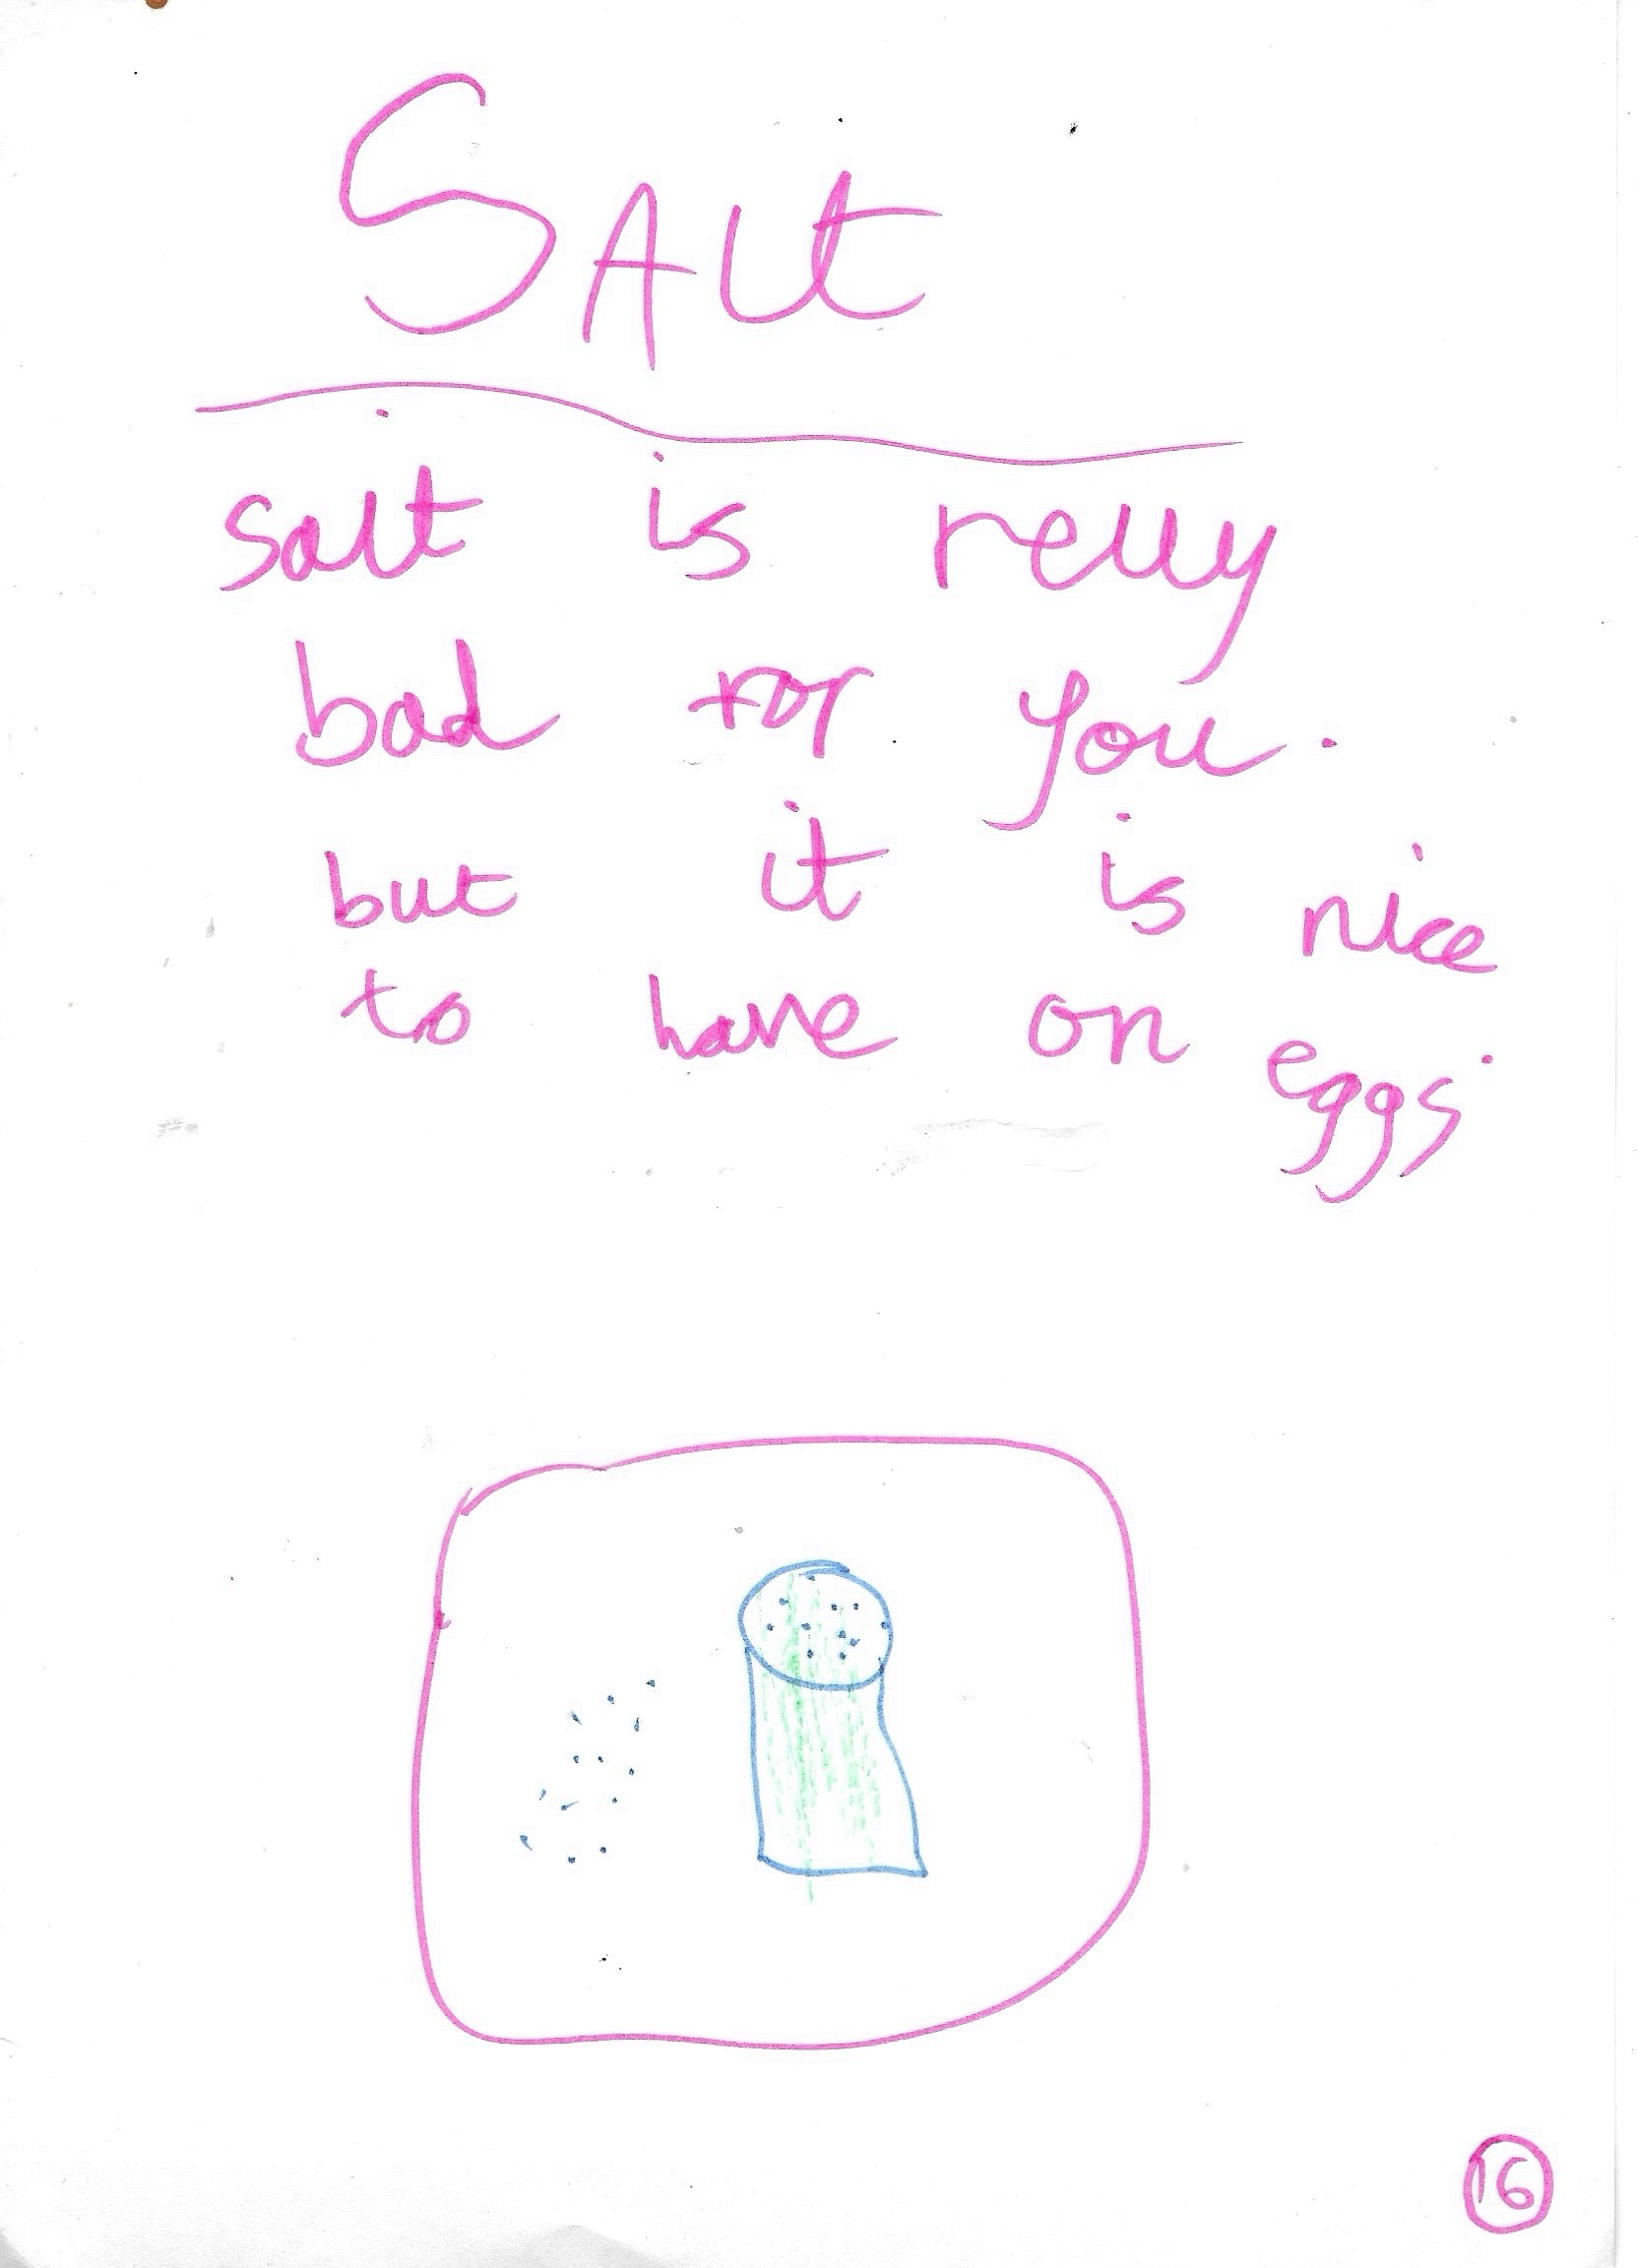 SAlt
salt is relly
bad for you.
but it is nice
to have on eggs.
16